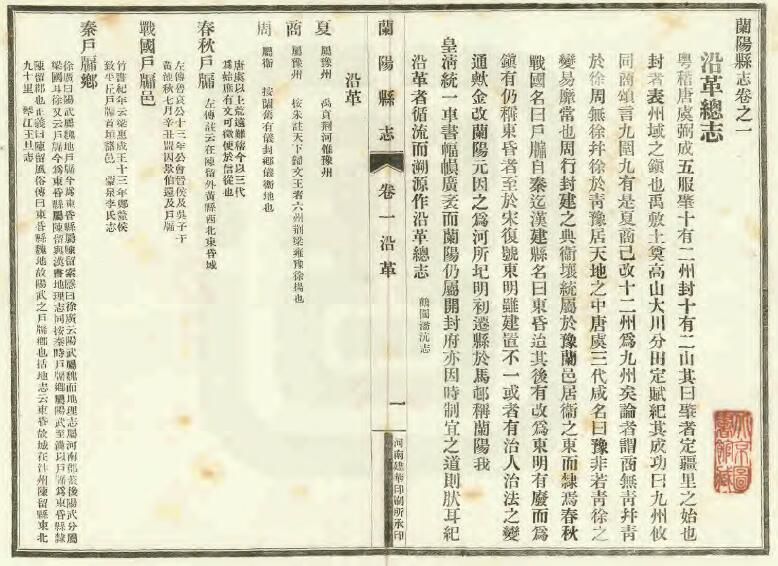 蘭陽縣志卷之一
沿革總志
粵稽唐虞弼成五服肇十有二州封十有二山其曰肇者定疆里之始也
封者表州域之鎭也禹敷土奠高山大川分田定賦紀其成功曰九州攸
同商頌言九圍九有是夏商已改十二州爲九州矣論者謂商無靑幷靑
於徐周無徐幷徐於靑豫居天地之中唐虞三代咸名曰豫非若靑徐之
變易靡常也周行封建之典衞壤統屬於豫蘭邑居衞之東而隸焉春秋
戰國名曰戶牖自秦迄漢建縣名曰東昏迨其後有改爲東明有廢而爲
鎭有仍稱東昏者至於宋復號東明雖建置不一或者有治人治法之變
通歟金改蘭陽元因之爲河所圮明初遷縣於馬邨稱蘭陽我
皇淸統一車書幅幀廣袤而蘭陽仍屬開封府亦因時制宜之道則肰耳紀
沿革者循流而溯源作沿革總志 鶴閬潘沆志
蘭陽縣志
卷一沿革
一
河南建華印刷所承印
沿革
夏 屬豫州 禹貢荆河惟豫州
商 屬豫州 按朱註天下歸文王者六州荆梁雍豫徐揚也
周 屬衞 按蘭舊有儀封鄉儀衞地也
唐虞以上荒遠難稽今以三代
爲始庶有文可徵便於信從也
春秋戶牖 左傳註云在陳留外黃縣西北東昏城
左傳哀公十三年公會晉侯及吳子于
黃池秋七月辛丑盟囚景伯還及戶牖
戰國戶牖邑
竹書紀年云梁惠成王十三年鄭釐侯
致平丘戶牖首垣諸邑 蒙泉李氏志
秦戶牖鄉
徐廣曰陽武魏地戶牖今爲東昏縣屬陳留索隱曰徐廣云陽武屬魏而地理志屬河南郡蓋後陽武分屬
梁國耳徐又云戶牖今爲東昏縣屬陳留與漢書地理志同按秦時戶牖鄉屬陽武至漢以戶牖爲東昏縣隸
陳留郡也正義曰陳留風俗傳曰東昏縣魏地故陽武之戶牖鄉也括地志云東昏故城在汴州陳留縣東北
九十里